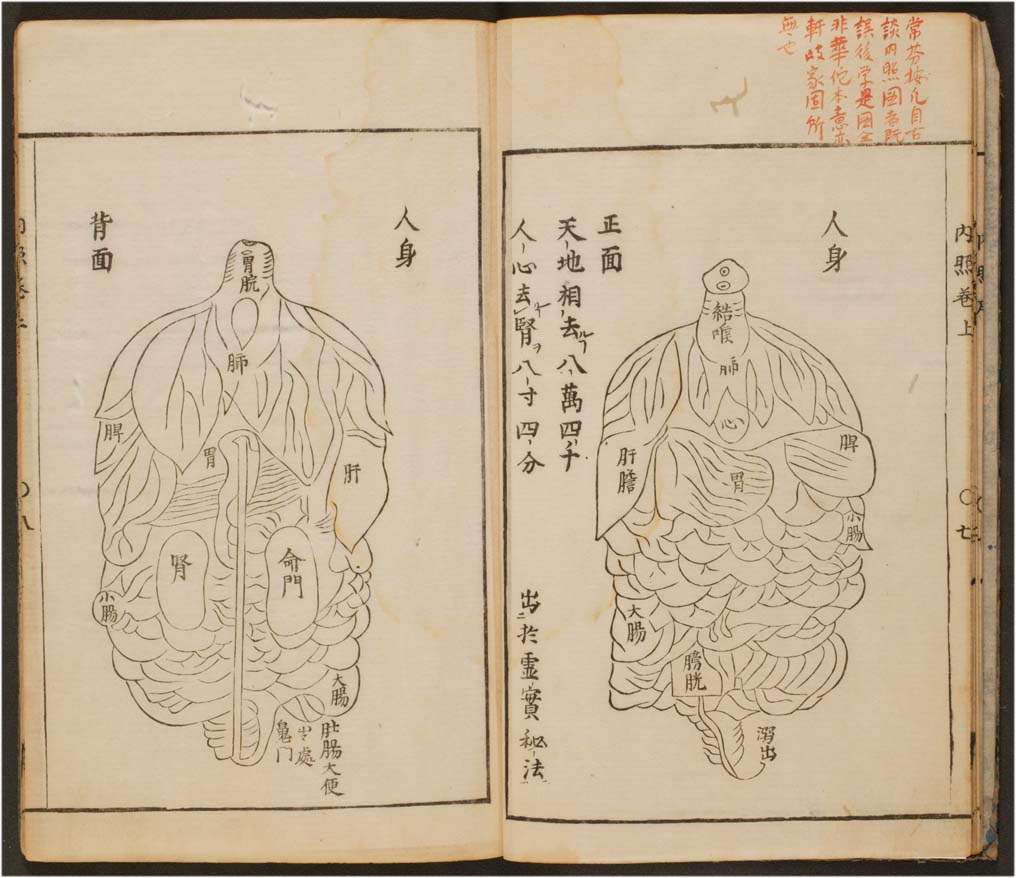 常芬按凡自古
談内照圖者既
誤後学是圖全
非華佗本意亦
軒岐家固所
無也
内照卷上
〇七
人身
正面
天地相去八萬四千
人心去腎八寸四分
出於靈寶秘法
結喉
肺
心
肝膽
胃
脾
小腸
大腸
膀胱
溺出
人身
背面
胃脘
肺
脾
胃
肝
腎
命門
小腸
大腸
肚腸大便
出處
門